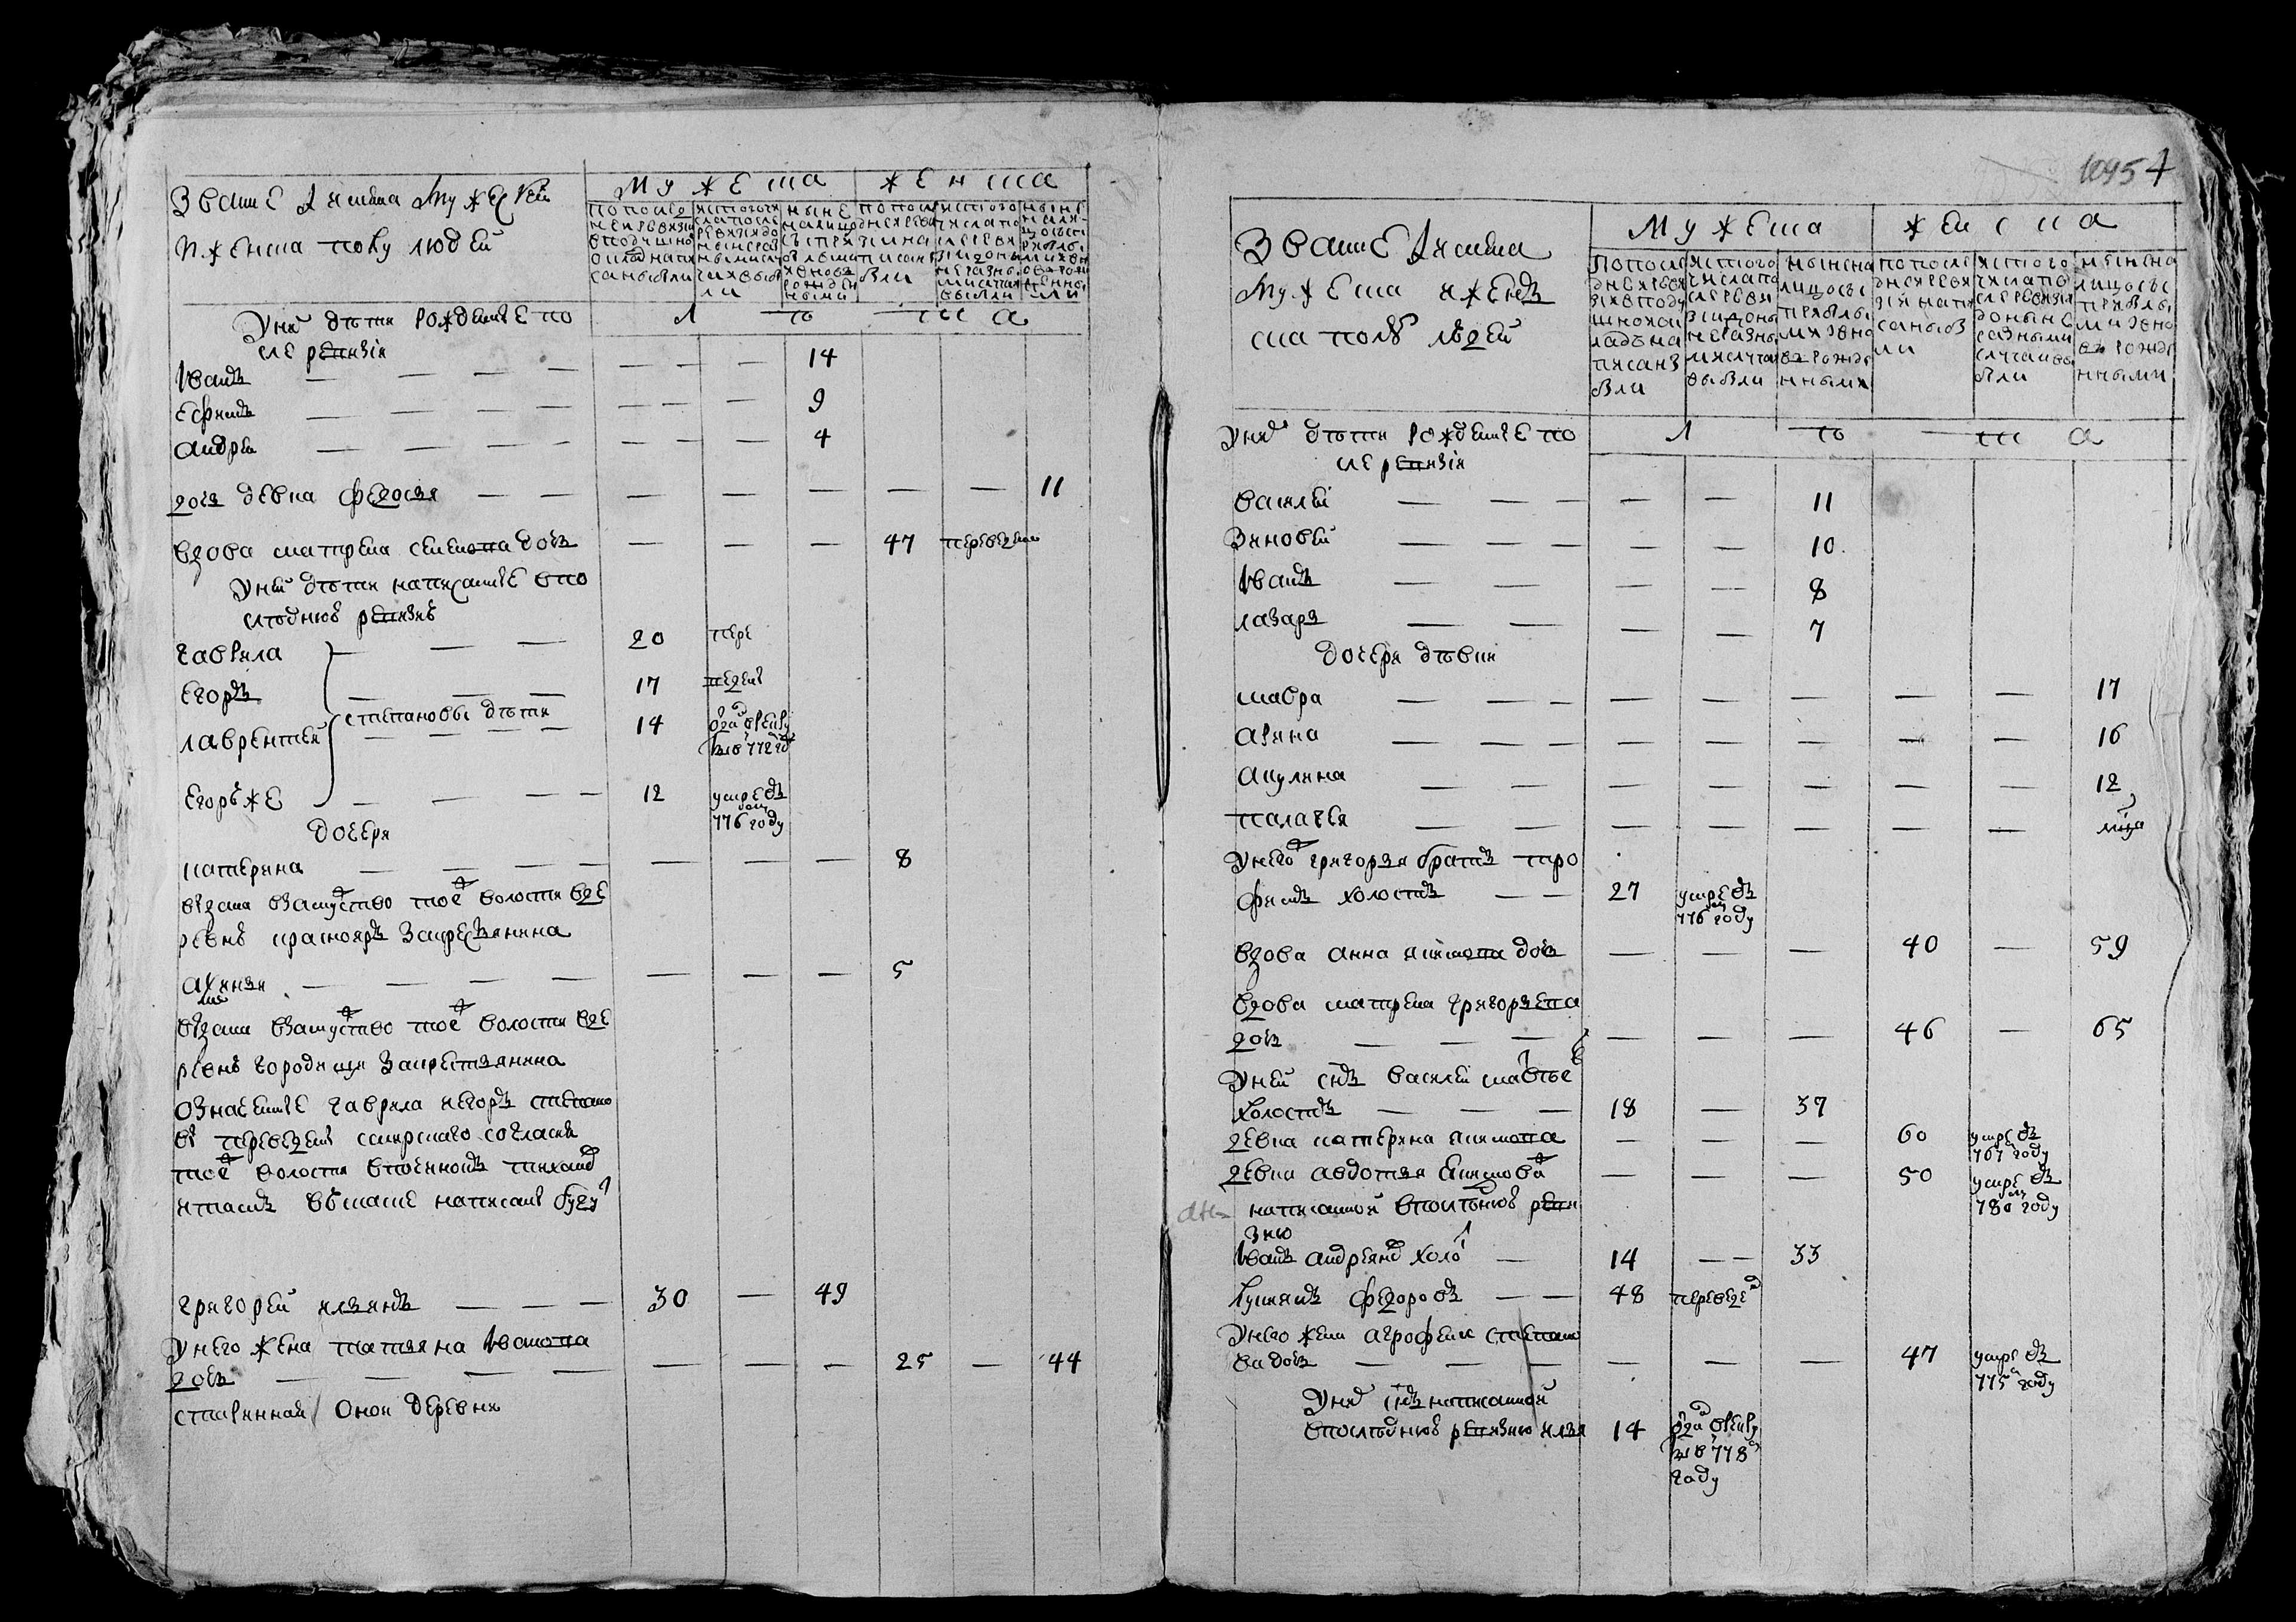 Звание и имена мужеска
и женска полу людей
мужеска
женска
по последней ревизии в подушной оклад написаны были
из того числа после ревизии до ныне разными случаи выбыли
ныне на лицо с прибылыми и вновь рожденными
по последней ревизии написаны были
из того числа после ревизии до ныне разными случаи выбыли
ныне на лицо с прибылыми и вновь рожденными
лета
у них дети рожденные по
сле ревизiи
Iванъ — 14
Ефимъ — 9
Андреи — 4
дочь девка федосья — 11
вдова матрена семенова дочь — 47 переведена
у ней дети написанные в по
следнюю ревизию
гаврила — 20 пере
Егоръ — 17 ведены
степановы дети
лаврентей — 14 отдан в рекруты в 772 году
Егоръ же — 12 умре в 776 году
дочери
катерина — 8
выдана в замужство той волости в де
ревню красноярь за крестьянина
аксинья — 5
выдана в замужство той волости в де
ревню городище за крестьянина
означенные гаврила и егоръ степано
вы переведены с мирскаго согласия
той волости в починокъ
и тамъ в сказке написаны будут
григорей ильинъ — 30 — 49
у него жена татьяна Iванова
дочь — 25 — 44
старинная оной деревни
Звание и имена
мужеска и женъ
ска полу людей
мужеска
женска
по последней ревизии в подушной окладъ написаны были
из того числа после ревизии до ныне разными случаи выбыли
ныне на лицо с прибылыми и вновь рожденными
по последней ревизии написаны были
из того числа после ревизии до ныне разными случаи выбыли
ныне на лицо с прибылыми и вновь рожденными
лета
у них дети рожденные по
сле ревизiя
василей — 11
Зиновей — 10
Iванъ — 8
лазарь — 7
дочери девки
мавра — 17
арина — 16
акулина — 12
палагея
у него григорья братъ тро
фимъ холостъ — 27 умре в 776 году
вдова анна якимова дочь — 40 — 59
вдова матрена григорьева
дочь — 46 — 65
у ней сынъ василей матвеев
холостъ — 18 — 37
девка катерина якимова — 60 умре в 767 году
девка авдотья екимова — 50 умре в 780 году
написанной в последнюю реви
зию
Iванъ андреянов холост — 14 — 33
кузма федоровъ — 48 переведен
у него жена агрофена степано
ва дочь — 47 умре в 775 году
у них сынъ написанной
в последнюю ревизию илья — 14 отдан в рекруты в 778 году